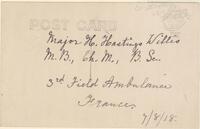 POST CARD
Major H. Hastings Willis
M.B., Ch.M., B.Sc.
3rd Field Ambulance
France
7/8/18.